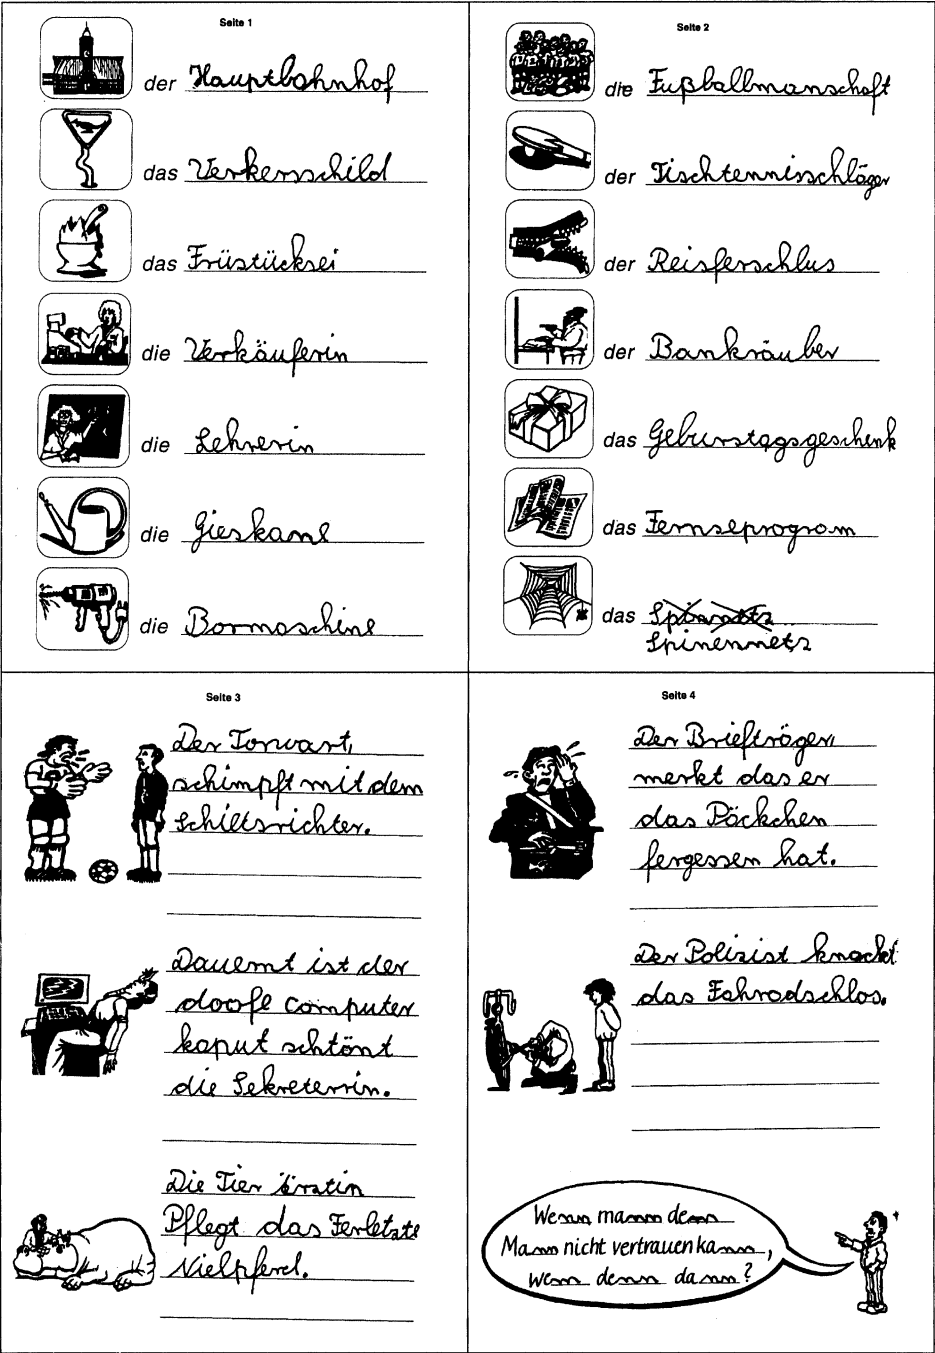 Seite 1
der Hauptbahnhof
das Verkersschild
das Früstücksei
die Verkäuferin
die Lehrerin
die Gieskane
die Bormaschine
Seite 2
die Fußballmanschaft
der Tischtennisschläger
der Reisferschlus
der Bankräuber
das Geburstagsgeschenk
das Fernseprogram
das
Spinennetz
Seite 3
Der Torwart,
schimpft mit dem
Schiltsrichter.
Dauernt ist der
doofe computer
kaput schtönt
die Sekreterrin.
Die Tier ärztin
Pflegt das Ferletzte
Nielpferd.
Seite 4
Der Briefträger,
merkt das er
das Päckchen
fergessen hat.
Der Polizist knackt
das Fahradschlos.
Wenn mann denn
Mann nicht vertrauen kann,
wem denn dann?